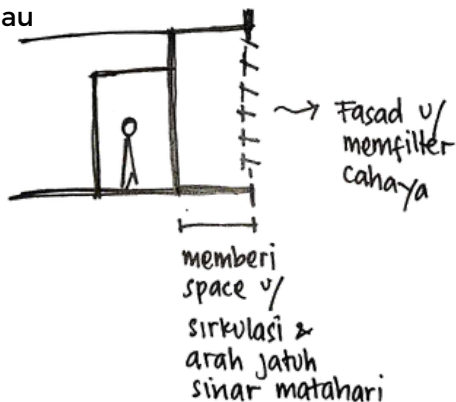 au
Fasad u/
memfilter
cahaya
memberi
space u/
sirkulasi &
arah jatuh
sinar matahari